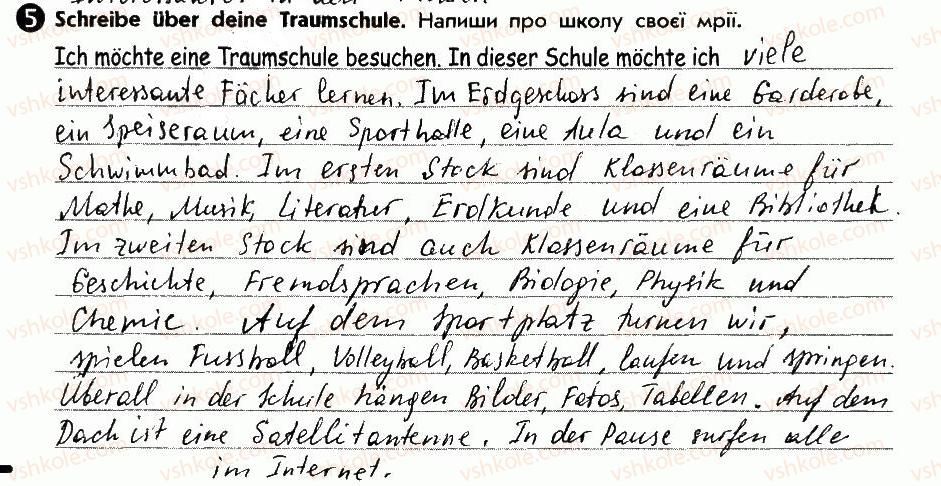 5 Schreibe über deine Traumschule. Напиши про школу своєї мрії.
Ich möchte eine Traumschule besuchen. In dieser Schule möchte ich viele
interessante Fächer lernen. Im Erdgeschoss sind eine Garderobe,
ein Speiseraum, eine Sporthalle, eine Aula und ein
Schwimmbad. Im ersten Stock sind Klassenräume für
Mathe, Musik, Literatur, Erdkunde und eine Bibliothek.
Im zweiten Stock sind auch Klassenräume für
Geschichte, Fremdsprachen, Biologie, Physik und
Chemie. Auf dem Sportplatz turnen wir,
spielen Fussball, Volleyball, Basketball, laufen und springen.
Überall in der Schule hängen Bilder, Fotos, Tabellen. Auf dem
Dach ist eine Satellitantenne. In der Pause surfen alle
im Internet.